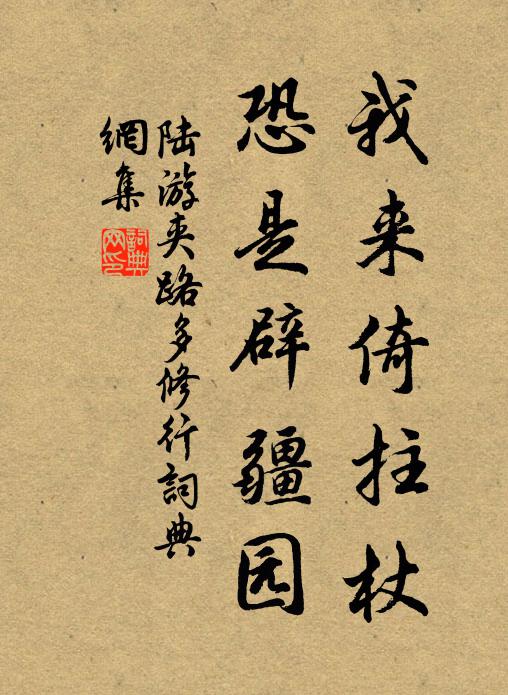 我来倚拄杖
恐是辟疆园
陆游夹路多修行詞典
網集
詞典網印